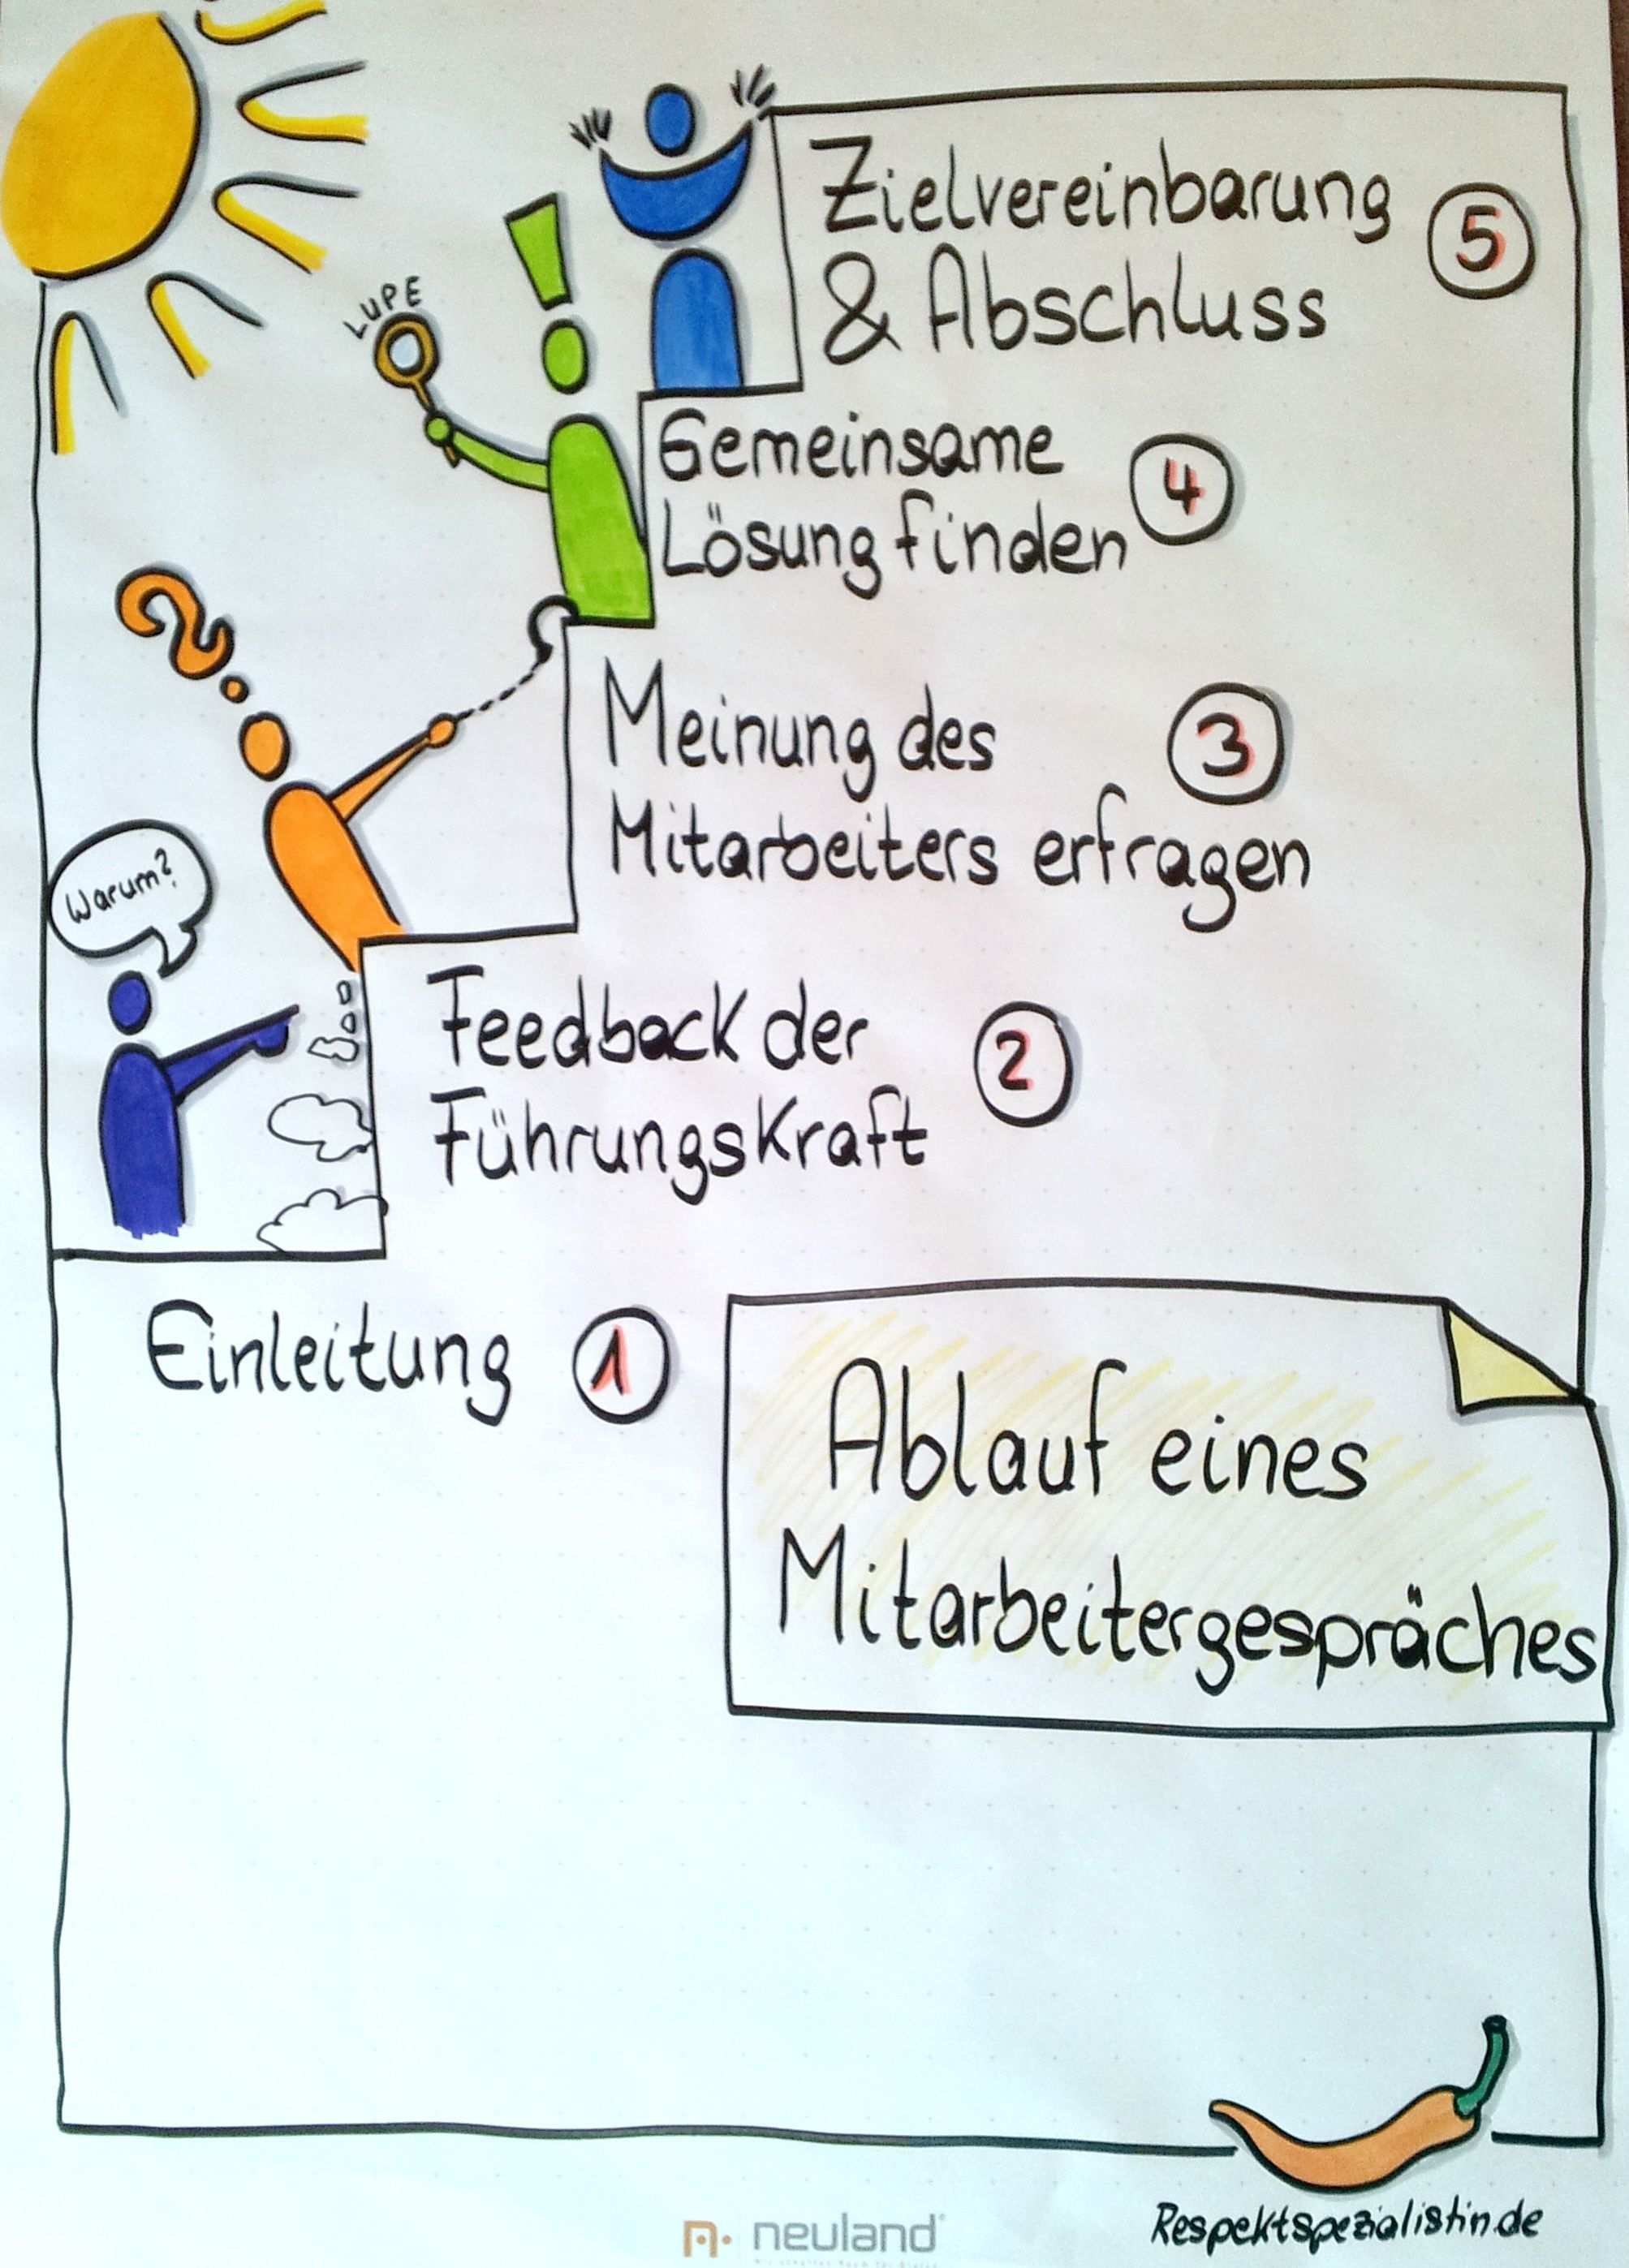 LUPE
Zielvereinbarung
& Abschluss
5
Gemeinsame
Lösung finden
4
Meinung des
Mitarbeiters erfragen
3
Warum?
Feedback der
Führungskraft
2
Einleitung
1
Ablauf eines
Mitarbeitergespräches
Respektspezialistin.de
neuland